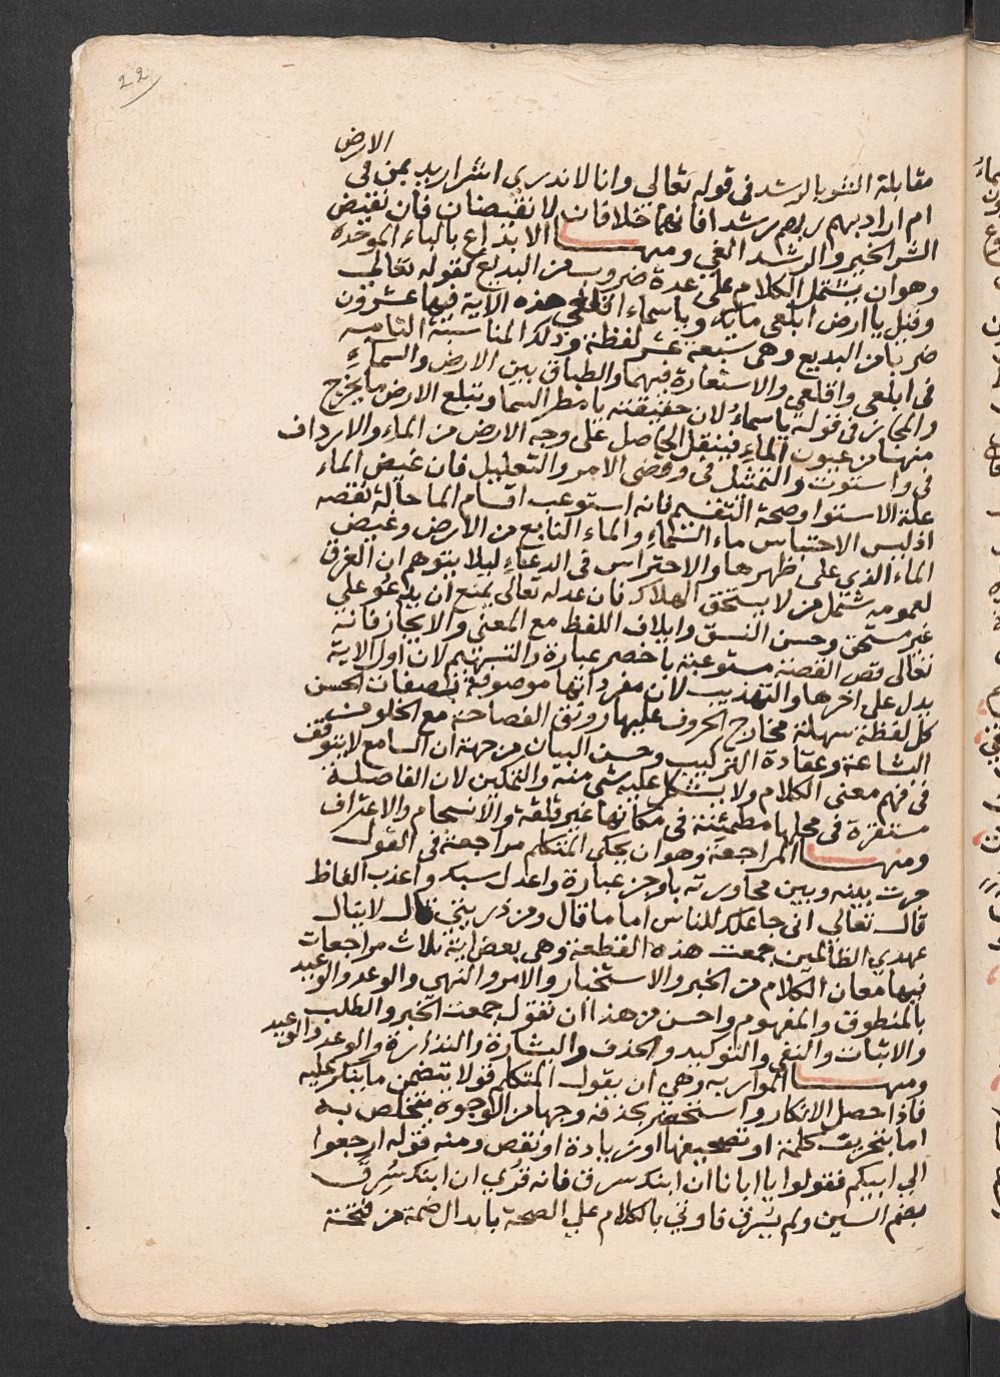 22
الارض
مقابلة الشر بالرشد في قوله تعالي وانا لا ندري اشر اريد بمن في
ام اراد بهم ربهم رشدا فانهما خلافان لا نقيضان فان نقيض
الشر الخير والرشد الغي ومنها الابداع بالباء الموحدة
وهو ان يشتمل الكلام علي عدة ضروب من البديع كقوله تعالي
وقيل يا ارض ابلعي ماءك ويا سماء اقلعي هذه الاية فيها عشرون
ضربا من البديع وهي سبعة عشر لفظة وذلك المناسبة التامه
في ابلعي واقلعي والاستعارة فيهما والطباق بين الارض والسماء
والمجاز في قوله يا سماء لان حقيقته يا مطر السما وتبلع الارض ما يخرج
منها من عيون الماء فينقل الحاصل علي وجه الارض من الماء والارداف
في واستوت والتمثيل في وقضي الامر والتعليل فان غيض الماء
علة الاستوا وصحة التقسيم فانه استوعب اقسام الما حالة نقصه
اذ ليس الا احتباس ماء السماء والماء النابع من الارض وغيض
الماء الذي علي ظهرها والاحتراس في الدعاء ليلا يتوهم ان الغرق
لعمومه شمل من لا يستحق الهلاك فان عدله تعالي يمنع ان يدعو علي
غير مستحق وحسن النسق وايلاف اللفظ مع المعني والايجاز فانه
تعالي قص القصة مستوعبة باخصر عبارة والتسهيم لان اول الاية
يدل علي اخرها والتهذيب لان مفرداتها موصوفة بصفات الحسن
كل لفظة سهلة مخارج الحروف عليها رونق الفصاحة مع الخلو من
البشاعة وعقادة التركيب وحسن البيان من جهة ان السامع لا يتوقف
في فهم معني الكلام ولا يشكل عليه شي منه والتمكين لان الفاصلة
مستقرة في محلها مطمئنة في مكانها غير قلقة والانسجام والاعتراف
ومنها المراجعة وهو ان يحكي المتكلم مراجعة في القول
جرت بينه وبين محاور له باوجز عبارة واعدل سبك واعذب الفاظ
قال تعالي اني جاعلك للناس اماما قال ومن ذريتي قال لا ينال
عهدي الظالمين جمعت هذه القطعة وهي بعض اية ثلاث مراجعات
فيها معان الكلام من الخبر والاستخبار والامر والنهي والوعد والوعيد
بالمنطوق والمفهوم واحسن من هذا ان نقول جمعت الخبر والطلب
والاثبات والنفي والتوكيد والحذف والبشارة والنذارة والوعد والوعيد
ومنها المواربه وهي ان يقول المتكلم قولا يتضمن ما ينكر عليه
فاذا حصل الانكار واستحضر بحذقه وجها من الوجوه يتخلص به
اما بتحريف كلمة او تصحيفها او زيادة او نقص ومنه قوله ارجعوا
الي ابيكم فقولوا يا ابانا ان ابنك سرق فانه قري ان ابنك سُرِق
بضم السين ولم يسرق فاوتي بالكلام علي الصحة بابدال ضمة من فتحة